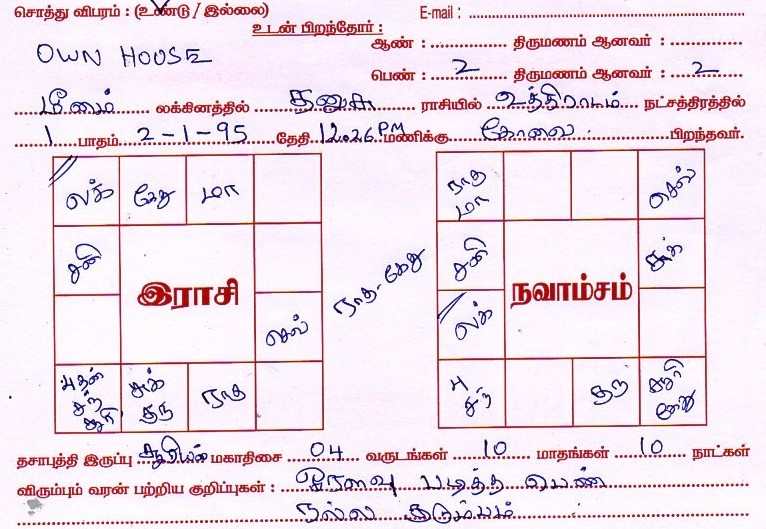 சொத்து விபரம் : (உண்டு / இல்லை) E-mail :
உடன் பிறந்தோர் :
OWN HOUSE
ஆண் : திருமணம் ஆனவர் :
பெண் : 2 திருமணம் ஆனவர் : 2
மீனம் லக்கினத்தில் தனுசு ராசியில் உத்திராடம் நட்சத்திரத்தில்
1 பாதம் 2-1-95 தேதி 12.26 PM மணிக்கு கோவை பிறந்தவர்.
லக் கேது மா
சனி
இராசி
செவ்
புதன் சந் சூரி
சுக் குரு
ராகு
ராகு-கேது
ராகு மா
செவ்
சனி
சுக்
நவாம்சம்
லக்
பு சந்
குரு
சூரி கேது
தசாபுத்தி இருப்பு சூரியன் மகாதிசை 04 வருடங்கள் 10 மாதங்கள் 10 நாட்கள்
விரும்பும் வரன் பற்றிய குறிப்புகள் : ஓரளவு படித்த பெண்
நல்ல குடும்பம்